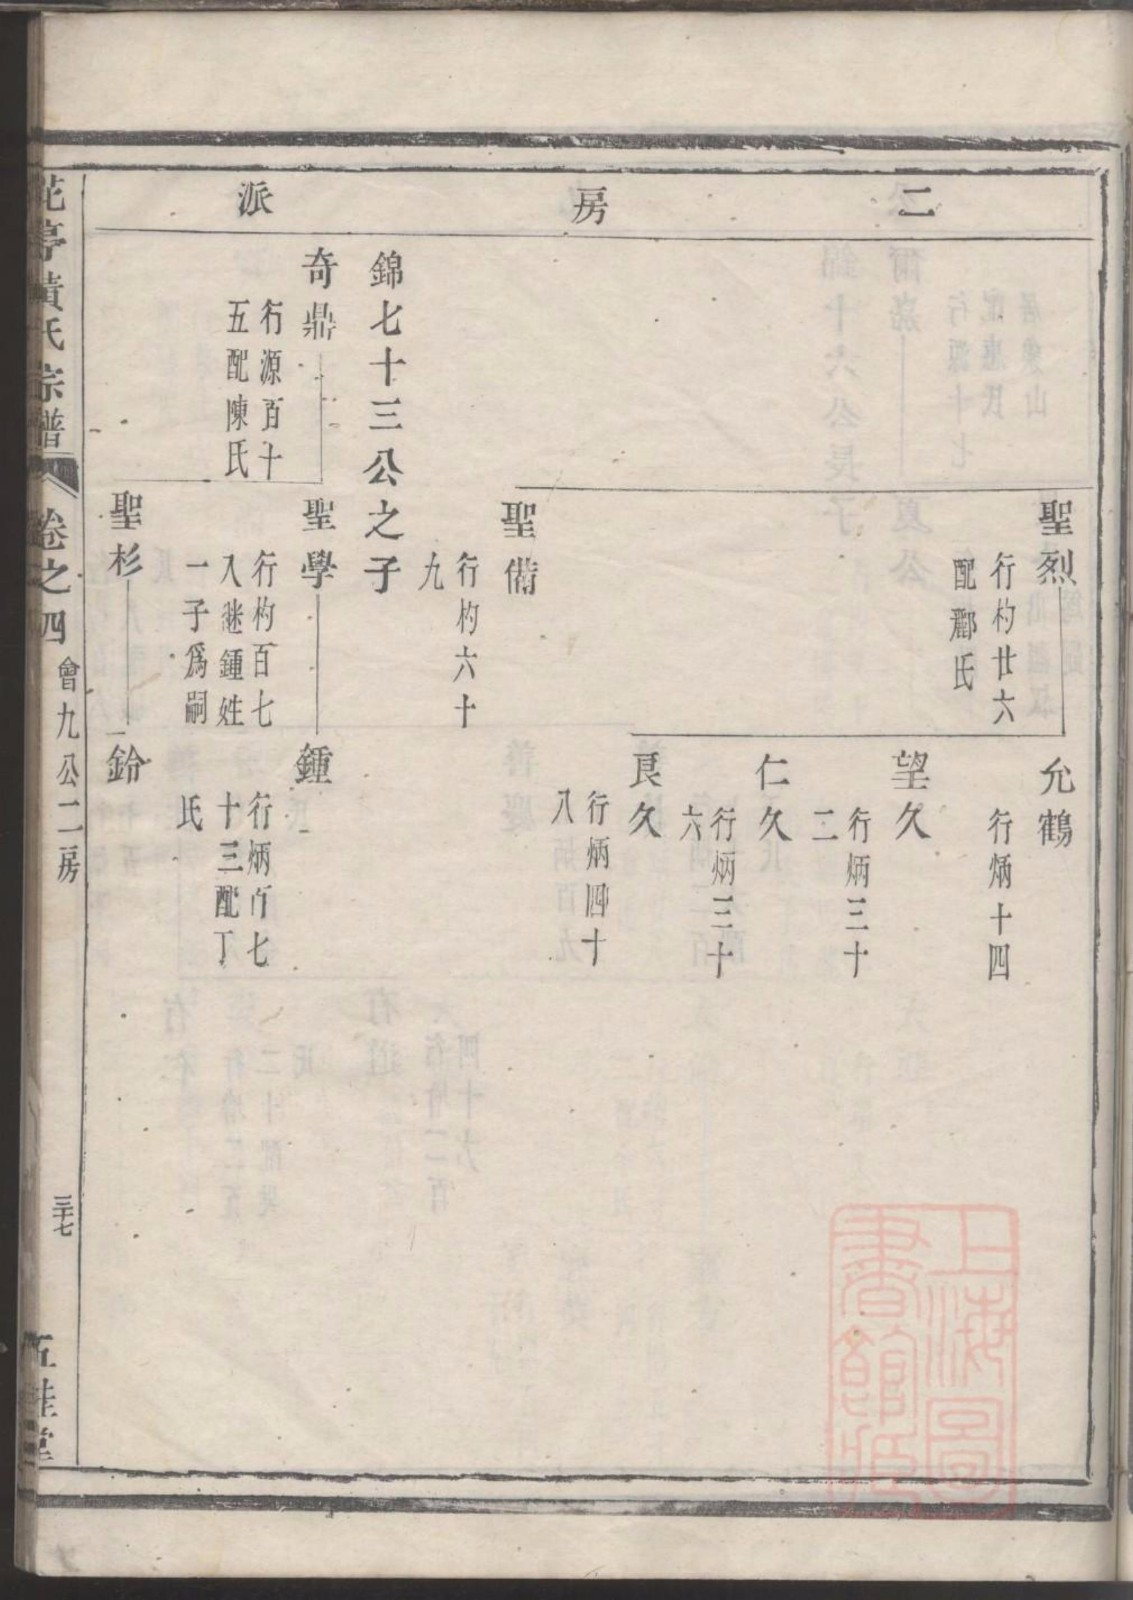 二房派
聖烈
行杓廿六
配酈氏
允鶴
行炳十四
望久
行炳三十
二
仁久
行炳三十
六
良久
行炳四十
八
聖備
行杓六十
九
錦七十三公之子
奇鼎
行源百十
五配陳氏
聖學
行杓百七
入継鍾姓
一子為嗣
鍾
行炳百七
十三配丁
氏
聖杉
鈴
花亭黃氏宗譜
卷之四
曾九公二房
三十七
五桂堂
上海圖
書館藏